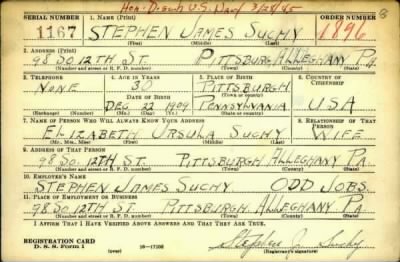 Hon. Disch U.S. Navy 3/28/45
SERIAL NUMBER 1. NAME (Print) ORDER NUMBER
1167 STEPHEN JAMES SUCHY 1896
(First) (Middle) (Last)
2. ADDRESS (Print)
98 SO. 12TH ST. PITTSBURG ALLEGHANY PA.
(Number and street or R. F. D. number) (Town) (County) (State)
3. TELEPHONE 4. AGE IN YEARS 5. PLACE OF BIRTH 6. COUNTRY OF CITIZENSHIP
NONE 30 PITTSBURGH
DATE OF BIRTH
DEC. 22 1909 PENNSYLVANIA USA
(Exchange) (Number) (Mo.) (Day) (Yr.) (State or country)
7. NAME OF PERSON WHO WILL ALWAYS KNOW YOUR ADDRESS 8. RELATIONSHIP OF THAT PERSON
ELIZABETH URSULA SUCHY WIFE
(Mr., Mrs., Miss) (First) (Middle) (Last)
9. ADDRESS OF THAT PERSON
98 SO. 12TH ST. PITTSBURGH ALLEGHANY PA
(Number and street or R. F. D. number) (Town) (County) (State)
10. EMPLOYER'S NAME
STEPHEN JAMES SUCHY ODD JOBS.
11. PLACE OF EMPLOYMENT OR BUSINESS
98 SO. 12TH ST. PITTSBURGH ALLEGHANY PA.
(Number and street or R. F. D. number) (Town) (County) (State)
I AFFIRM THAT I HAVE VERIFIED ABOVE ANSWERS AND THAT THEY ARE TRUE.
REGISTRATION CARD
D. S. S. Form 1 (over) 16-17105 Stephen J. Suchy
(Registrant's signature)